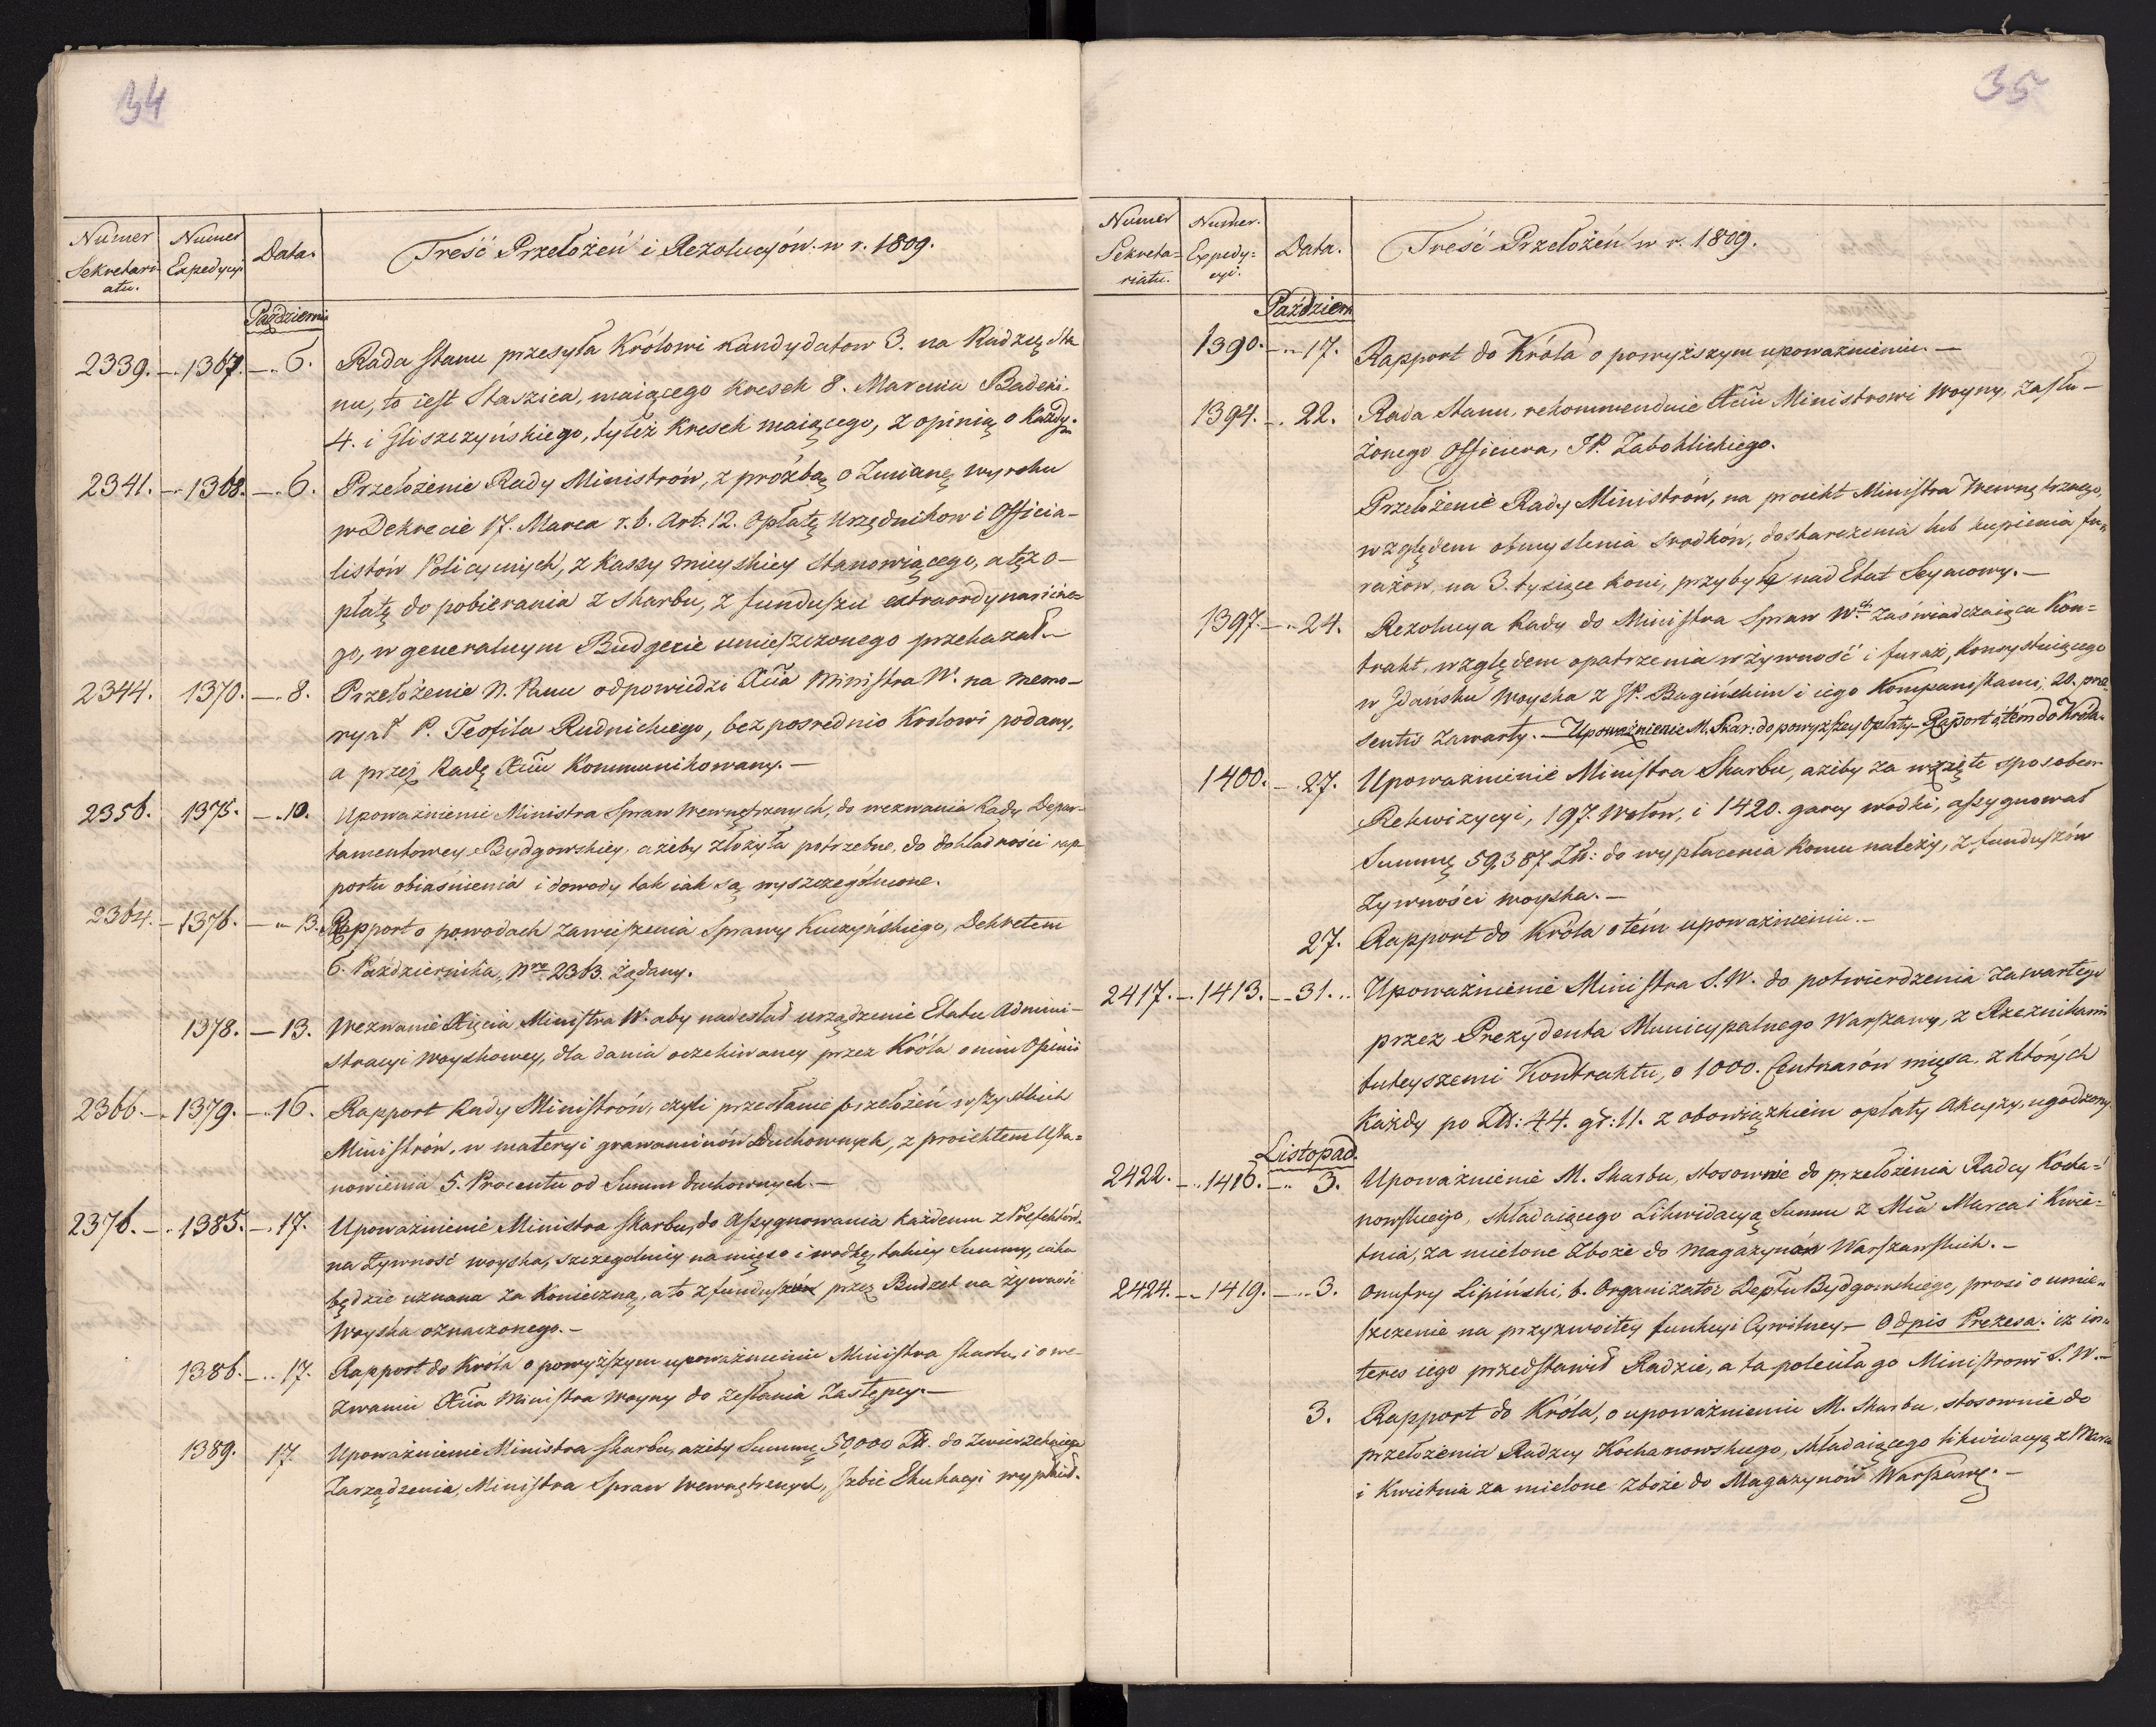 34
Numer Sekretariatu. Numer Expedycyi Data. Treść Przełożeń i Rezolucyów w r. 1809.
Październi
2339. 1367. 6. Rada Stanu przesyła Królowi Kandydatow 3. na Radzcę Sta
nu, to iest Staszica, maiącego kresek 8. Marcina Badeni.
4. i Gliszczyńskiego, tyleż kresek maiącego, z opinią o każdym
2341. 1368. 6. Przełożenie Rady Ministrów, z proźbą o Zmianę wyroku
w Dekrecie 17. Marca r. b. Art: 12. Opłatę Urzędnikow i Officia-
listów Policyinych, z Kassy mieyskiey Stanowiącego, a tęż o-
płatę do pobierania z Skarbu, z funduszu extraordynaryine-
go, w generalnym Budgecie umieszczonego przekazał.
2344. 1370. 8. Przełożenie N. Panu odpowiedzi Xcia Ministra W. na memo-
ryał P. Teofila Rudnickiego, bezposrednio Krolowi podany,
a przez Radę Xciu Kommunikowany.-
2356. 1375. 10. Upoważnienie Ministra Spraw Wewnętrznych, do wezwania Rady Depar-
tamentowey Bydgowskiey, ażeby złożyła potrzebne, do dokładności rap
portu obiaśnienia i dowody tak iak są wyszczególnione.
2364. 1376. 13. Rapport o powodach zawieszenia Sprawy Kuczyńskiego, Dekretem
6. Października, Nro 2363. żądany.
1378. 13. Wezwanie Xięcia Ministra W. aby nadesłał urządzenie Etatu Admini-
stracyi Woyskowey, dla dania oczekiwaney przez Króla o nim Opinii
2366. 1379. 16. Rapport Rady Ministrów, czyli przesłanie przełożeń wszystkich
Ministrów, w materyi grawaminów Duchownych, z proiektem Usta=
nowienia 5. Procentu od Summ duchownych.-
2376. 1385. 17. Upoważnienie Ministra Skarbu, do Assygnowania każdemu z Prefektów
na Żywność woyska, szczegolniey na mięso i wodkę, takiey Summy, iaka
będzie uznana za Konieczną, a to z funduszów przez Budzet na żywność
Woyska oznaczonego.-
1386. 17. Rapport do Króla o powyższym upoważnieniu Ministra Skarbu, i o we-
zwaniu Xcia Ministra Woyny do zesłania Zastępcy.-
1389. 17 Upoważnienie Ministra Skarbu, ażeby Summę 50,000 Zł. do Zwierzchniego
Zarządzenia, Ministra Spraw Wewnętrznych, Izbie Edukacyi wypłacił.
35
Numer Sekreta=riatu. Numer. Expedy=cyi. Data. Treść Przełożeń w r. 1809.
Październ
1390. 17. Rapport do Króla o powyższym upoważnieniu.-
1394. 22. Rada Stanu, rekommenduie Xciu Ministrowi Woyny, Zasłu-
żonego Officiera, JP. Zaboklickiego.
Przełożenie Rady Ministrów, na proiekt Ministra Wewnętrznego,
względem obmyslenia srodków, dostarczenia lub kupienia fu-
rażow, na 3. tysiące koni, przybyłe nad Etat Seymowy.-
1397. 24. Rezolucya Rady do Ministra Spraw Wch zaświadczaiąca Kon=
trakt, względem opatrzenia w żywność i furaż, Konsystuiącego
w Gdańsku Woyska z JP. Bagińskim i iego Kompanistami; 20. prae
sentis zawarty.- Upoważnienie M. Skar: do powyższey Opłaty- Raport o tém do Króla.
1400. 27. Upoważnienie Ministra Skarbu, ażeby za wzięte sposobem
Rekwizycyi, 197. Wołow, i 1420. garcy wodki, assygnował
Summę 59,387 Zł: do wypłacenia komu należy, z funduszów
Żywności woyska.-
27. Rapport do Króla o tém upoważnieniu.-
2417. 1413. 31. Upoważnienie Ministra S. W. do potwierdzenia Zawartego
przez Prezydenta Municypalnego Warszawy, z Rzeznikami
tuteyszemi Kontraktu, o 1000. Centnarów mięsa, z których
Każdy po Zł: 44. gr: 11. z obowiązkiem opłaty Akcyzy, ugodzony.
Listopad.
2422. 1416. 3. Upoważnienie M. Skarbu, stosownie do przełożenia Radcy Kocha=
nowskiego, składaiącego Likwidacyą Summ z Mca Marca i Kwie-
tnia, za mielone Zboże do Magazynów Warszawskich.-
2424. 1419. 3. Onufry Lipiński, b. Organizator Deptu Bydgowskiego, prosi o umie-
szczenie na przyzwoitey funkcyi Cywilney.- Odpis Prezesa. iż in-
teres iego przedstawił Radzie, a ta poleciła go Ministrowi S. W.-
3. Rapport do Króla, o upoważnieniu M. Skarbu, stosownie do
przełożenia Radzcy Kochanowskiego, składaiącego likwidacyą z Marca
i Kwietnia za mielone zboże do Magazynów Warszawy.-